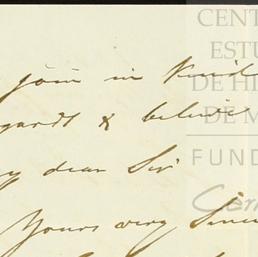 join in kind
regards & believe
my dear Sir
Yours very Since
CENT
ESTU
DE HI
DE M
FUND
Carl